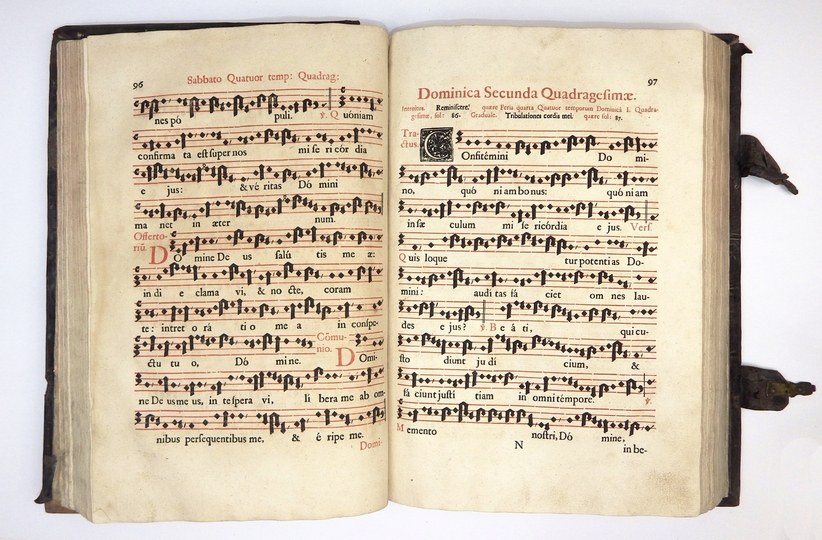 96
Sabbato Quatuor temp: Quadrag:
nes pó puli. ℣. Quóniam
confirma ta est super nos mi se ri cór dia
e jus: & vé ritas Dó mini
ma net in æter num.
Offerto-
riũ. DO mine De us salú tis me æ:
in di e clama vi, & no cte, coram
te: intret o rá ti o me a in conspe-
ctu tu o, Dó mi ne. Cõmu-
nio. DOmi-
ne De us me us, in te spera vi, li bera me ab om-
nibus persequentibus me, & é ripe me.
Domi-
97
Dominica Secunda Quadragesimæ.
Introitus. Reminiscere. quære Feria quarta Quatuor temporum Dominicâ I. Quadra-
gesimæ, fol: 86. Graduale. Tribulationes cordis mei. quære fol: 87.
Tra-
ctus. COnfitémini Do mi-
no, quó ni am bo nus: quó ni am
in sæ culum mi se ricórdia e jus. Vers.
Quis loque tur potenti as Do-
mini: audi tas fá ciet om nes lau-
des e jus? ℣. Be á ti, qui cu-
sto diunt ju dí cium, &
fá ciunt justí tiam in omni témpore. ℣.
Memento nostri, Dó mine,
N in be-